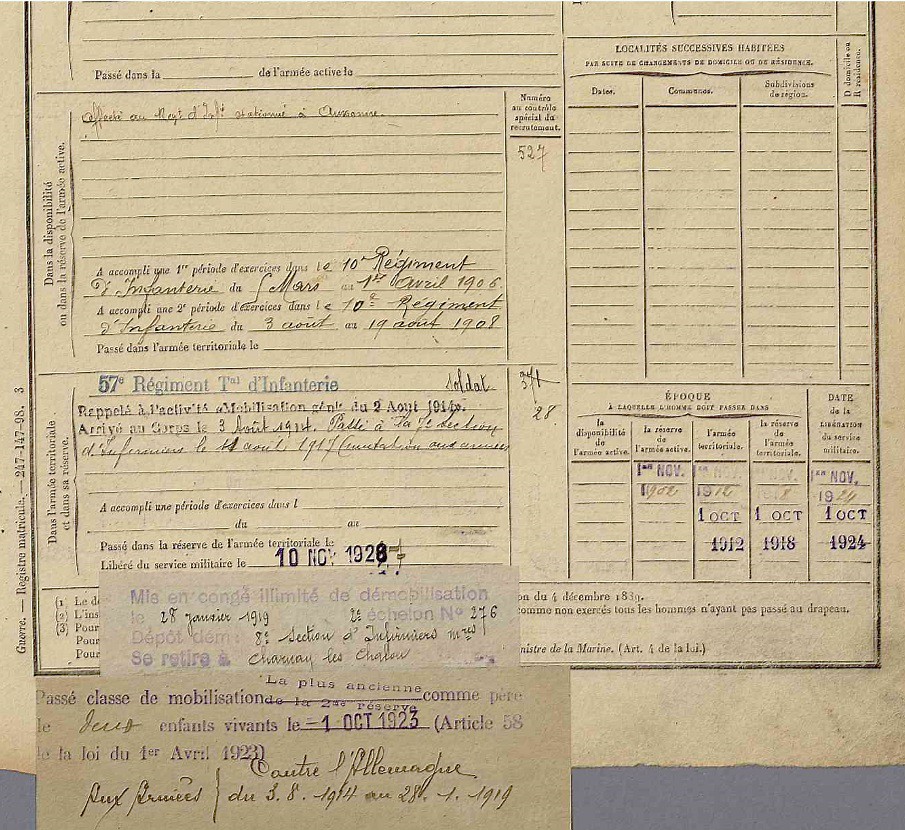 Passé dans la ____ de l'armée active le ____
LOCALITÉS SUCCESSIVES HABITÉES
PAR SUITE DE CHANGEMENTS DE DOMICILE OU DE RÉSIDENCE.
Dates.
Communes.
Subdivisions
de région.
D domicile ou
R résidence.
Dans la disponibilité
ou dans la réserve de l'armée active.
Affecté au Régt d'Infie stationné à Auxonne.
Numéro
au contrôle
spécial du
recrutement.
527
A accompli une 1re période d'exercices dans le 10e Régiment
d'Infanterie du 5 Mars au 1er Avril 1906.
A accompli une 2e période d'exercices dans le 10e Régiment
d'Infanterie du 3 août au 19 août 1908
Passé dans l'armée territoriale le
Dans l'armée territoriale
et dans sa réserve.
57e Régiment Tal d'Infanterie soldat
28
Rappelé à l'activité «Mobilisation génle du 2 Aout 1914».
Arrivé au Corps le 3 Août 1914. Passé à la 7e section
d'Infirmiers le août 1917 (mutation aux armées
A accompli une période d'exercices dans l
du au
Passé dans la réserve de l'armée territoriale le
Libéré du service militaire le 10 NOV 1928
ÉPOQUE
À LAQUELLE L'HOMME DOIT PASSER DANS
DATE
de la
LIBÉRATION
du service
militaire.
la
disponibilité
de
l'armée active.
la réserve
de
l'armée active.
l'armée
territoriale.
la réserve
de
l'armée
territoriale.
1er NOV. 1er NOV. 1er NOV. 1er NOV.
1902 1912 1918 1924
1 OCT 1 OCT 1 OCT
1912 1918 1924
Guerre. — Registre matricule. — 247-147-98. 3
(1) Le d
(2) L'ins
(3) Pour
Pour
Pour
on du 4 décembre 1889.
comme non exercés tous les hommes n'ayant pas passé au drapeau.
nistre de la Marine. (Art. 4 de la loi.)
Mis en congé illimité de démobilisation
le 28 janvier 1919 2e échelon No 276
Dépôt dém : 8e Section d'Infirmiers mres
Se retire à Charnay les Chalon
La plus ancienne
Passé classe de mobilisation de la 2me réserve comme père
le deux enfants vivants le 1 OCT 1923 (Article 58
de la loi du 1er Avril 1923)
Contre l'Allemagne
Aux Armées } du 3.8.1914 au 28.1.1919